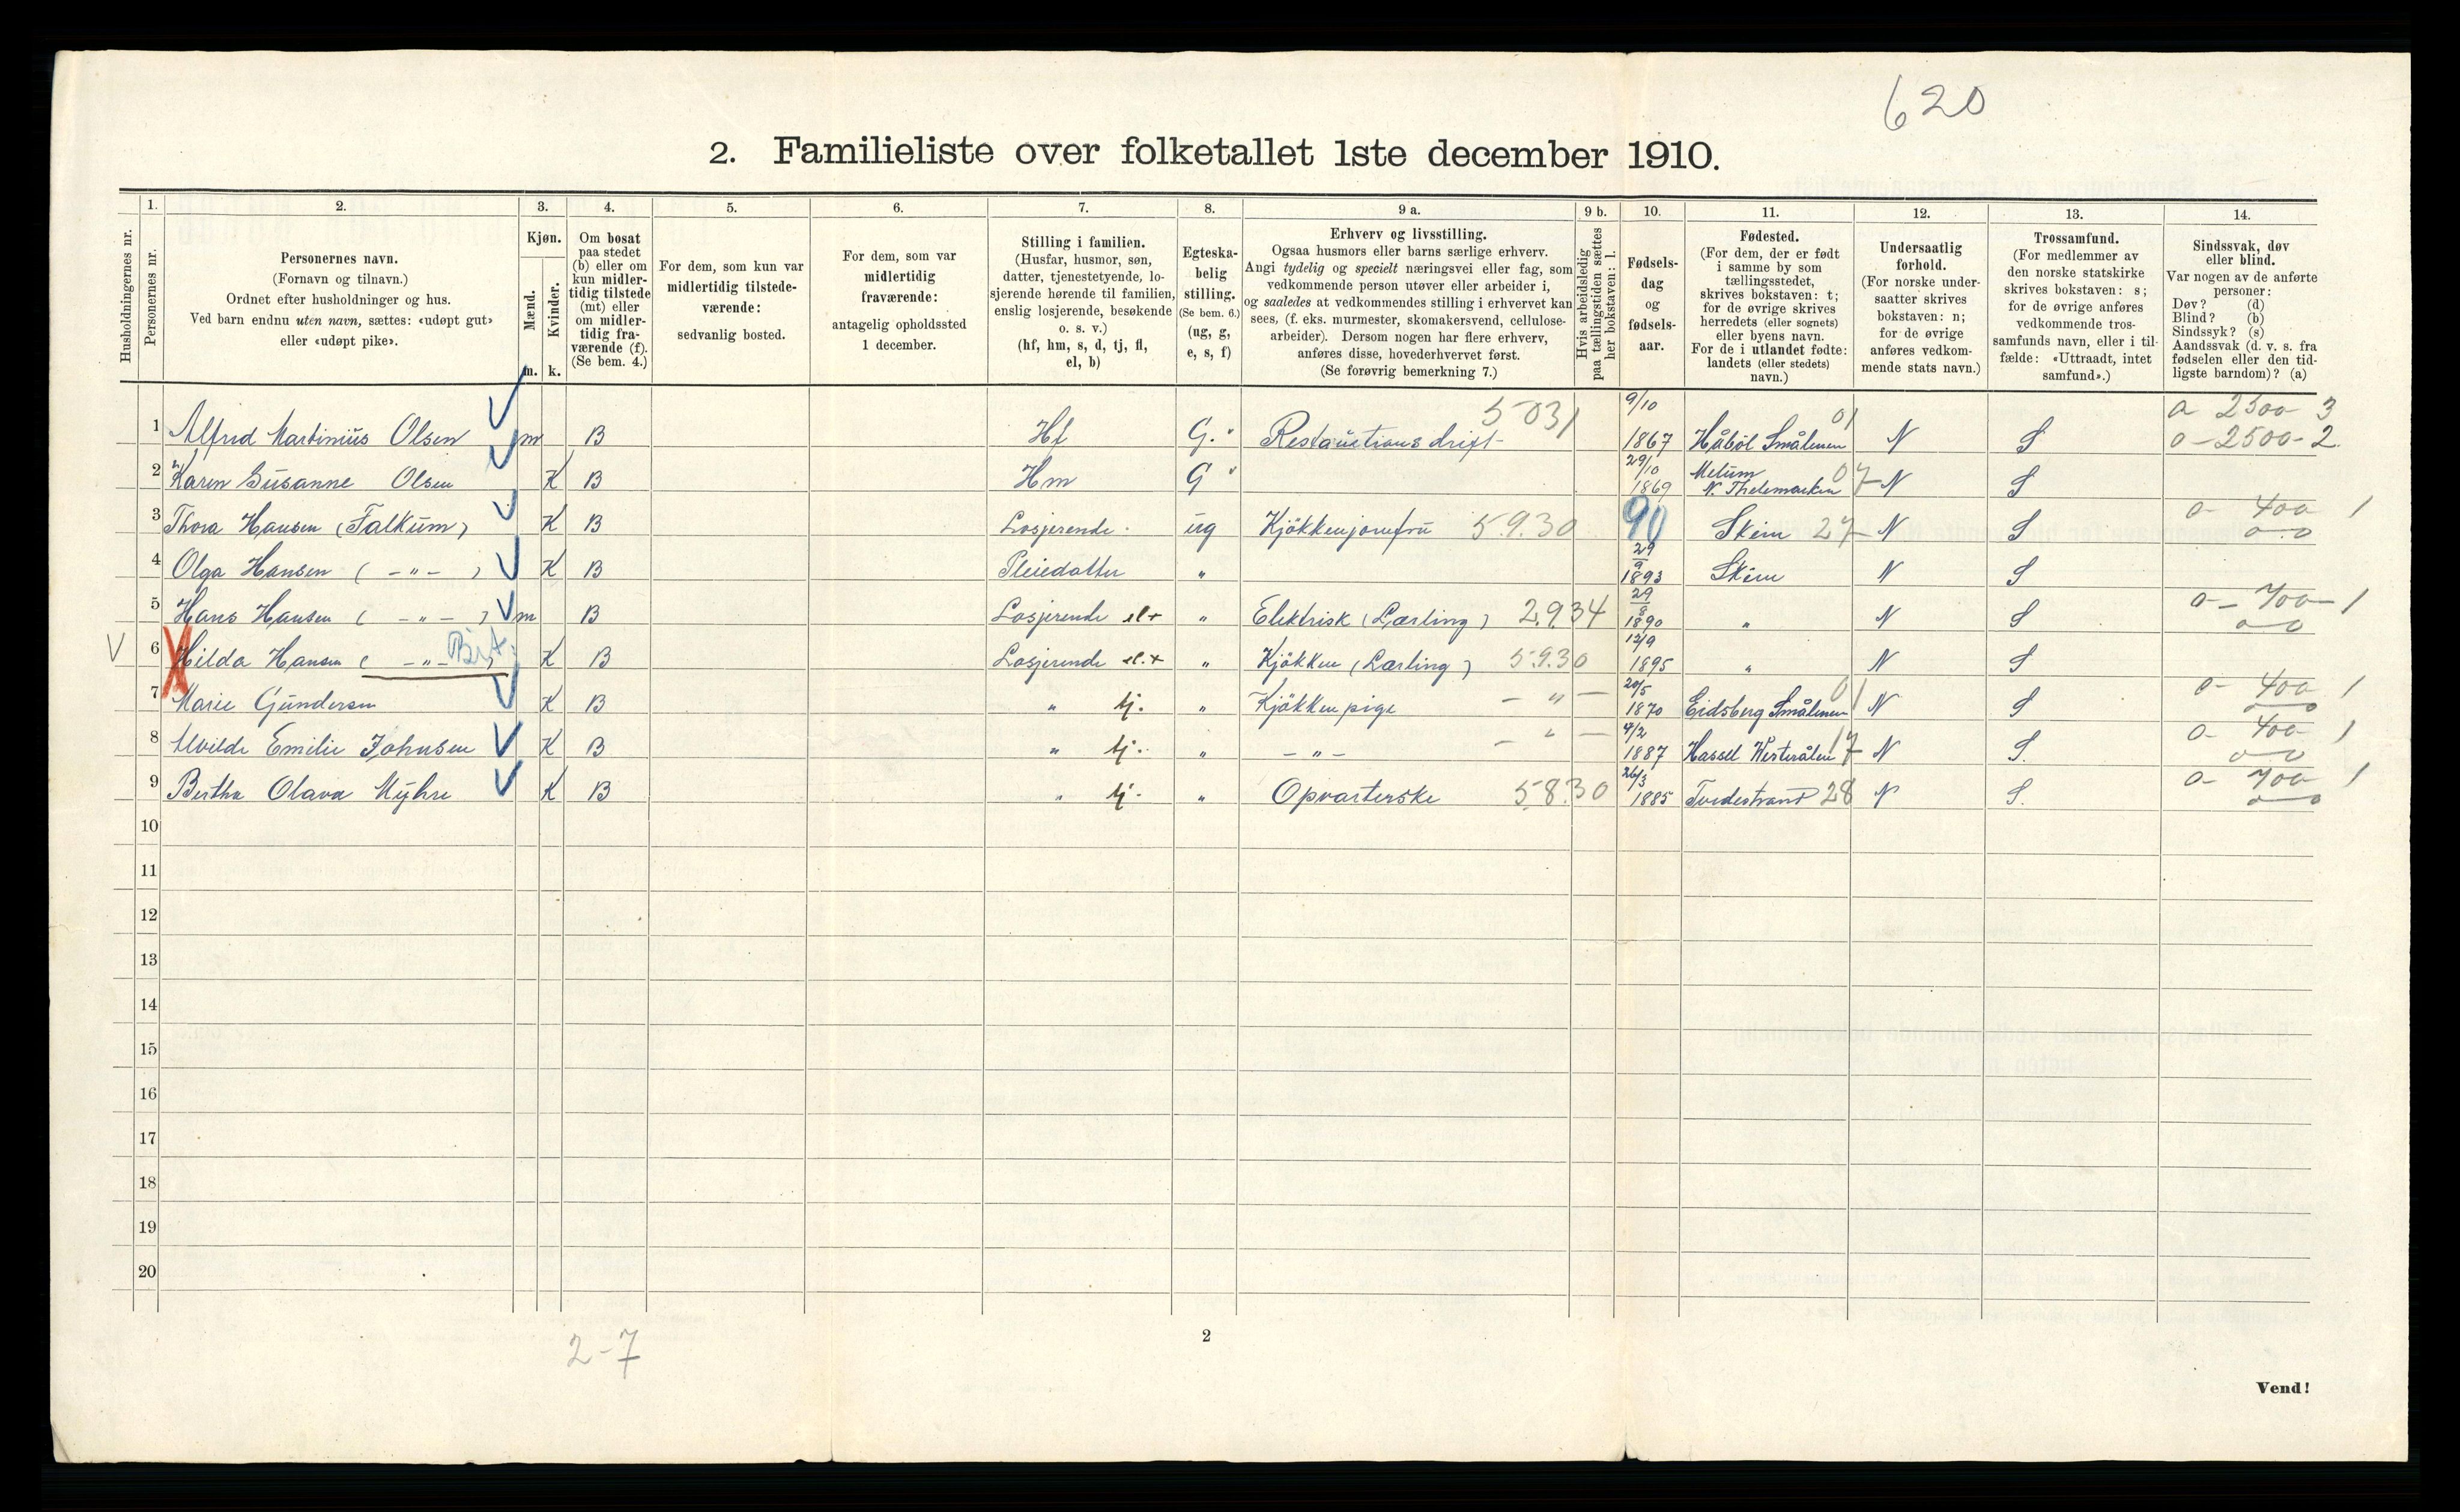 620
2. Familieliste over folketallet 1ste december 1910.
Husholdningernes nr.
1.
Personernes nr.
2.
Personernes navn.
(Fornavn og tilnavn.)
Ordnet efter husholdninger og hus.
Ved barn endnu uten navn, sættes: «udøpt gut»
eller «udøpt pike».
3.
Kjøn.
Mænd.
Kvinder.
m. k.
4.
Om bosat
paa stedet
(b) eller om
kun midler-
tidig tilstede
(mt) eller
om midler-
tidig fra-
værende (f).
(Se bem. 4.)
5.
For dem, som kun var
midlertidig tilstede-
værende:
sedvanlig bosted.
6.
For dem, som var
midlertidig
fraværende:
antagelig opholdssted
1 december.
7.
Stilling i familien.
(Husfar, husmor, søn,
datter, tjenestetyende, lo-
sjerende hørende til familien,
enslig losjerende, besøkende
o. s. v.)
(hf, hm, s, d, tj, fl,
el, b)
8.
Egteska-
belig
stilling.
(Se bem. 6.)
(ug, g,
e, s, f)
9 a.
Erhverv og livsstilling.
Ogsaa husmors eller barns særlige erhverv.
Angi tydelig og specielt næringsvei eller fag, som
vedkommende person utøver eller arbeider i,
og saaledes at vedkommendes stilling i erhvervet kan
sees, (f. eks. murmester, skomakersvend, cellulose-
arbeider). Dersom nogen har flere erhverv,
anføres disse, hovederhvervet først.
(Se forøvrig bemerkning 7.)
9 b.
Hvis arbeidsledig
paa tællingstiden sættes
her bokstaven: l.
10.
Fødsels-
dag
og
fødsels-
aar.
11.
Fødested.
(For dem, der er født
i samme by som
tællingsstedet,
skrives bokstaven: t;
for de øvrige skrives
herredets (eller sognets)
eller byens navn.
For de i utlandet fødte:
landets (eller stedets)
navn.)
12.
Undersaatlig
forhold.
(For norske under-
saatter skrives
bokstaven: n;
for de øvrige
anføres vedkom-
mende stats navn.)
13.
Trossamfund.
(For medlemmer av
den norske statskirke
skrives bokstaven: s;
for de øvrige anføres
vedkommende tros-
samfunds navn, eller i til-
fælde: «Uttraadt, intet
samfund».)
14.
Sindssvak, døv
eller blind.
Var nogen av de anførte
personer:
Døv? (d)
Blind? (b)
Sindssyk? (s)
Aandssvak (d. v. s. fra
fødselen eller den tid-
ligste barndom)? (a)
1 Alfred Martinius Olsen m B Hf G. Restaurationsdrift 5031 9/10 1867 Håböl Smålenene 01 N S a 2500 3
0-2500-2
2 Karen Susanne Olsen K B Hm G 29/10 1869 Melum N. Thelemarken 07 N S
3 Thora Hansen (Falkum) K B Losjerende ug Kjökkenjomfru 5.9.30 90 Skien 27 N S 0- 400 1
4 Olga Hansen ( -"- ) K B Pleiedatter " 29/9 1893 Skien N S
5 Hans Hansen ( -"- ) m B Losjerende el + " Elektrisk (Lærling) 2.9.34 29/8 1890 " N S 0- 700- 1
V 6 Hilda Hansen ( -"- ) K B Losjerende el. + " Kjökken (Lærling) 5.9.30 12/9 1895 " N S
7 Marie Gundersen K B " tj. " Kjökkenpige - " - 20/5 1870 Eidsberg Smålenene 01 N S 0- 400 1
8 Alvilde Emilie Johnsen K B " tj. " - " - - " - 4/2 1887 Hassel Westerålen 17 N S. 0- 400 1
9 Bertha Olava Myhre K B " tj. " Opvarterske 5.8.30 26/3 1885 Tvedestrand 28 N S. 0- 700 1
10
11
12
13
14
15
16
17
18
19
20
2-7
2
Vend!